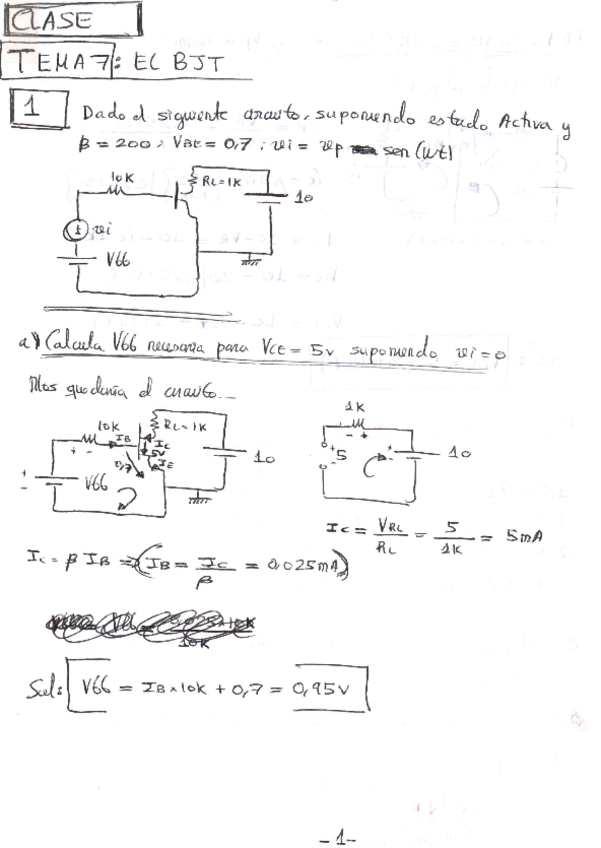 CLASE
TEMA 7: EL BJT
1 Dado el siguiente circuito, suponiendo estado Activa y
β = 200; VBE = 0,7; vi = vp sen (wt)
10K
RL = 1K
10
vi
V66
a) Calcula V66 necesaria para VCE = 5v suponiendo vi = 0
Nos quedaría el circuito...
10K
IB
RL = 1K
IC
5V
0,7
IE
10
V66
1K
5
10
IC = VRL / RL = 5 / 1K = 5mA
IC = β IB ⇒ (IB = IC / β = 0,025mA)
Sol: V66 = IB x 10K + 0,7 = 0,95v
- 1 -